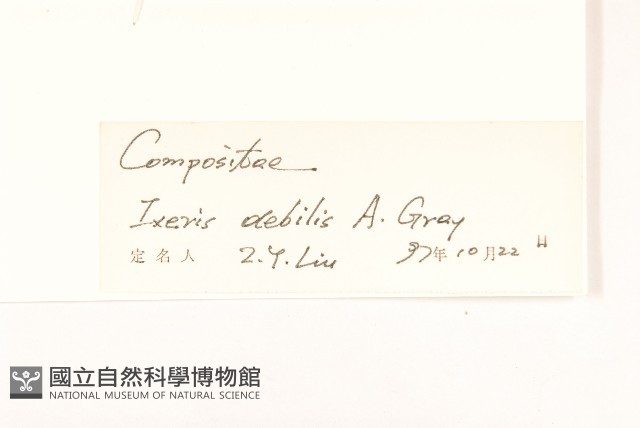 Compositae
Ixeris debilis A. Gray
定名人 Z.Y. Liu 97年10月22日
國立自然科學博物館
NATIONAL MUSEUM OF NATURAL SCIENCE